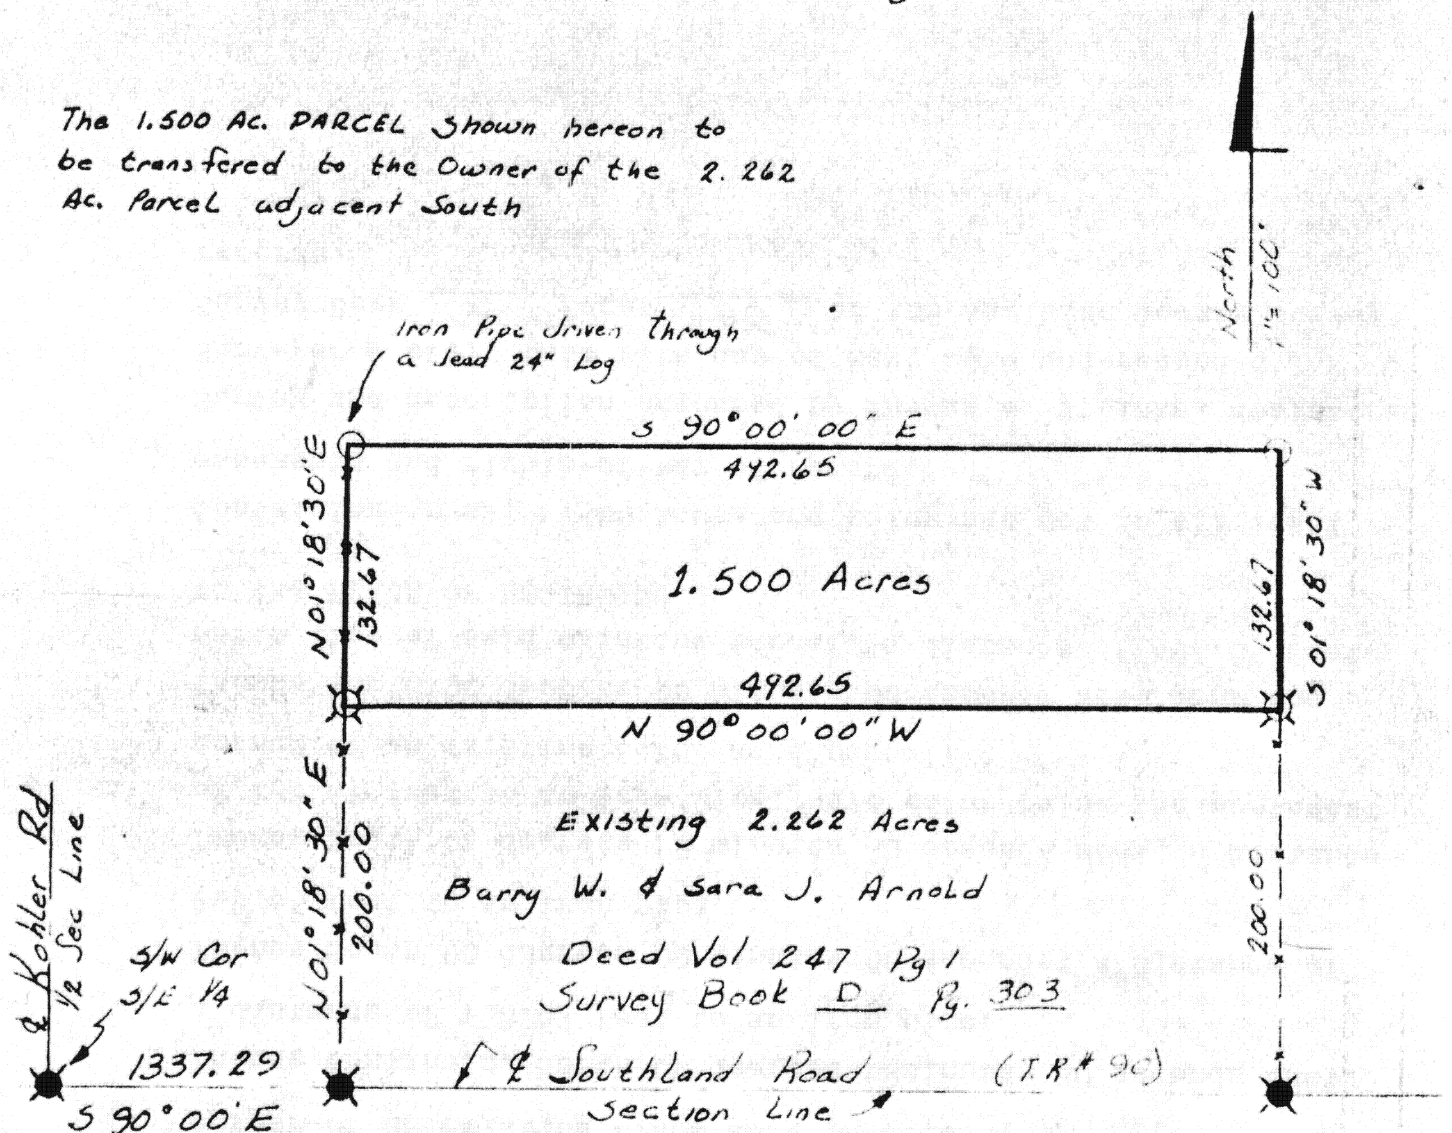 The 1.500 Ac. PARCEL Shown hereon to
be transfered to the Owner of the 2.262
Ac. Parcel adjacent South
North
1"= 100'
Iron Pipe driven through
a dead 24" Log
S 90° 00' 00" E
492.65
N 01° 18' 30" E
132.67
1.500 Acres
132.67
S 01° 18' 30" W
492.65
N 90° 00' 00" W
N 01° 18' 30" E
200.00
Existing 2.262 Acres
Barry W. & Sara J. Arnold
Deed Vol 247 Pg 1
Survey Book D Pg. 303
200.00
℄ Kohler Rd
1/2 Sec Line
S/W Cor
S/E 1/4
1337.29
S 90° 00' E
℄ Southland Road (T.R# 90)
Section Line